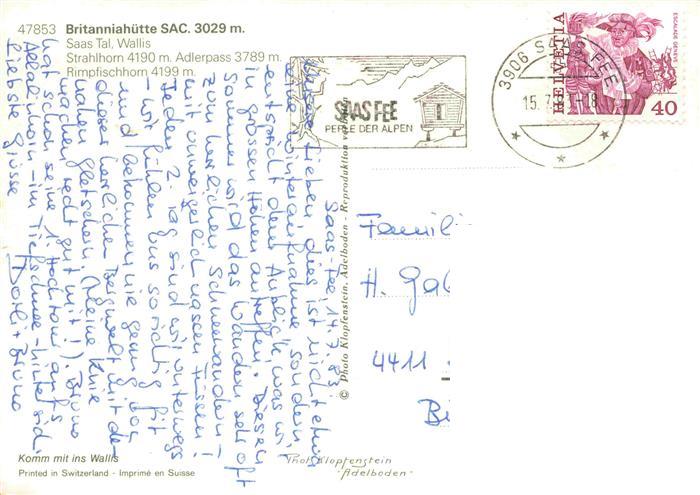 47853 Britanniahütte SAC. 3029 m.
Saas Tal, Wallis
Strahlhorn 4190 m. Adlerpass 3789 m.
Rimpfischhorn 4199 m.
SAAS FEE
PERLE DER ALPEN
3906 SAAS-FEE
15.7.
-18
HELVETIA
ESCALADE GENEVE
40
Saas-Fee, 14.7.83
Lieben, dies ist nicht etwa
eine Winteraufnahme sondern
entspricht dem Anblick was wir
in grossen Höhen antreffen. Diesen
Sommer wird das Wandern sehr oft
zum herrlichen Schneewandern –
mit nassen Füssen!
Jeden 2. Tag sind wir unterwegs
– wir fühlen uns so richtig fit
und bekommen nie genug von
dieser herrlichen Bergwelt mit de
nahen Gletschern. (Meine Knie
machen recht gut mit!). Bruno
hat schon seine 1. Hochtour aufs
Allalinhorn – im Tiefschnee – hinter sich.
Liebste Grüsse
Dorli + Bruno
© Photo Klopfenstein, Adelboden - Reproduktion verboten
Famili
H. Gal
4411
B
Komm mit ins Wallis
Printed in Switzerland - Imprimé en Suisse
Photo Klopfenstein
Adelboden